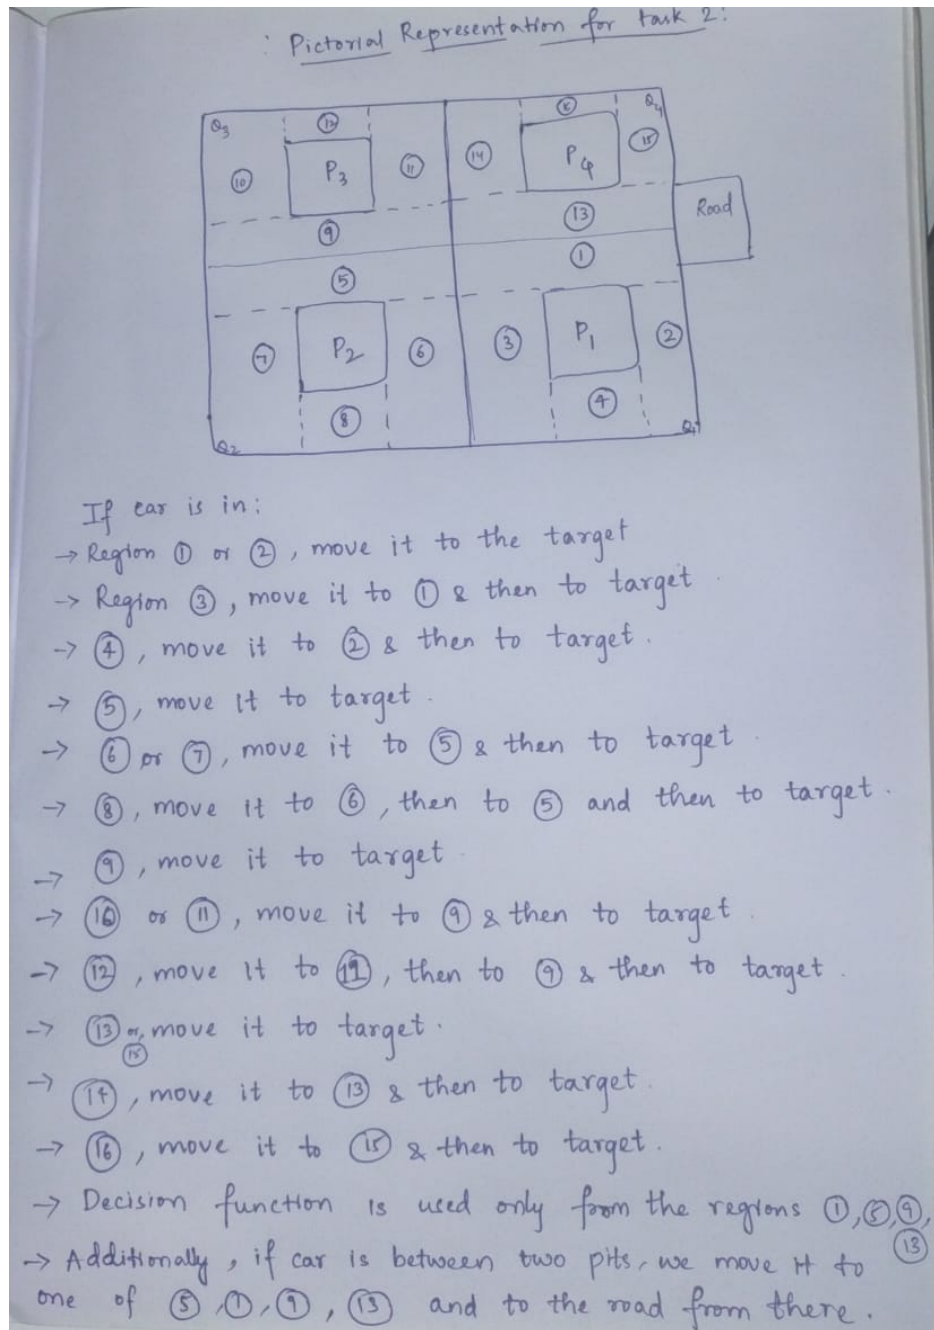 : Pictorial Representation for task 2:
Q3 ⑫ ⑯ Q4
⑩ P3 ⑪ ⑭ P4 ⑮
⑨ ⑬ Road
⑤ ①
⑦ P2 ⑥ ③ P1 ②
⑧ ④
Q2 Q1
If car is in:
→ Region ① or ②, move it to the target
→ Region ③, move it to ① & then to target
→ ④, move it to ② & then to target.
→ ⑤, move it to target.
→ ⑥ or ⑦, move it to ⑤ & then to target
→ ⑧, move it to ⑥, then to ⑤ and then to target.
→ ⑨, move it to target
→ ⑩ or ⑪, move it to ⑨ & then to target
→ ⑫, move it to ⑪, then to ⑨ & then to target
→ ⑬ or ⑮, move it to target.
→ ⑭, move it to ⑬ & then to target.
→ ⑯, move it to ⑮ & then to target.
→ Decision function is used only from the regions ①, ⑤, ⑨, ⑬
→ Additionally, if car is between two pits, we move it to
one of ⑤, ①, ⑨, ⑬ and to the road from there.